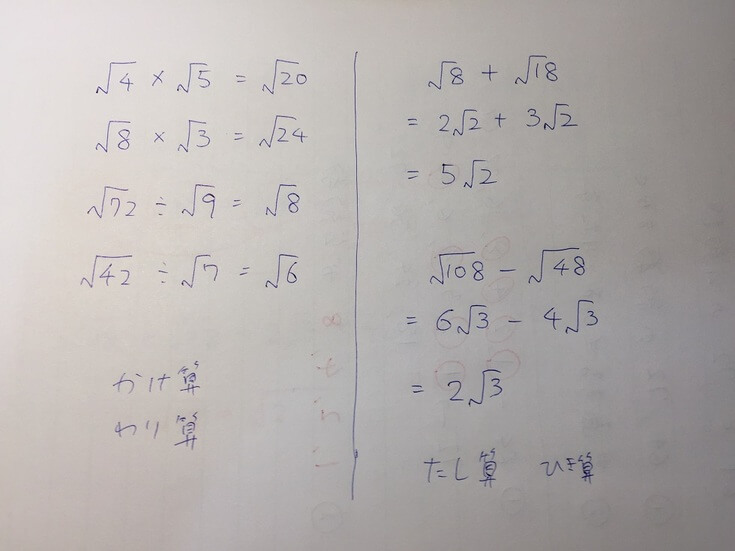 √4 × √5 = √20
√8 × √3 = √24
√72 ÷ √9 = √8
√42 ÷ √7 = √6
かけ算
わり算
√8 + √18
= 2√2 + 3√2
= 5√2
√108 - √48
= 6√3 - 4√3
= 2√3
たし算 ひき算